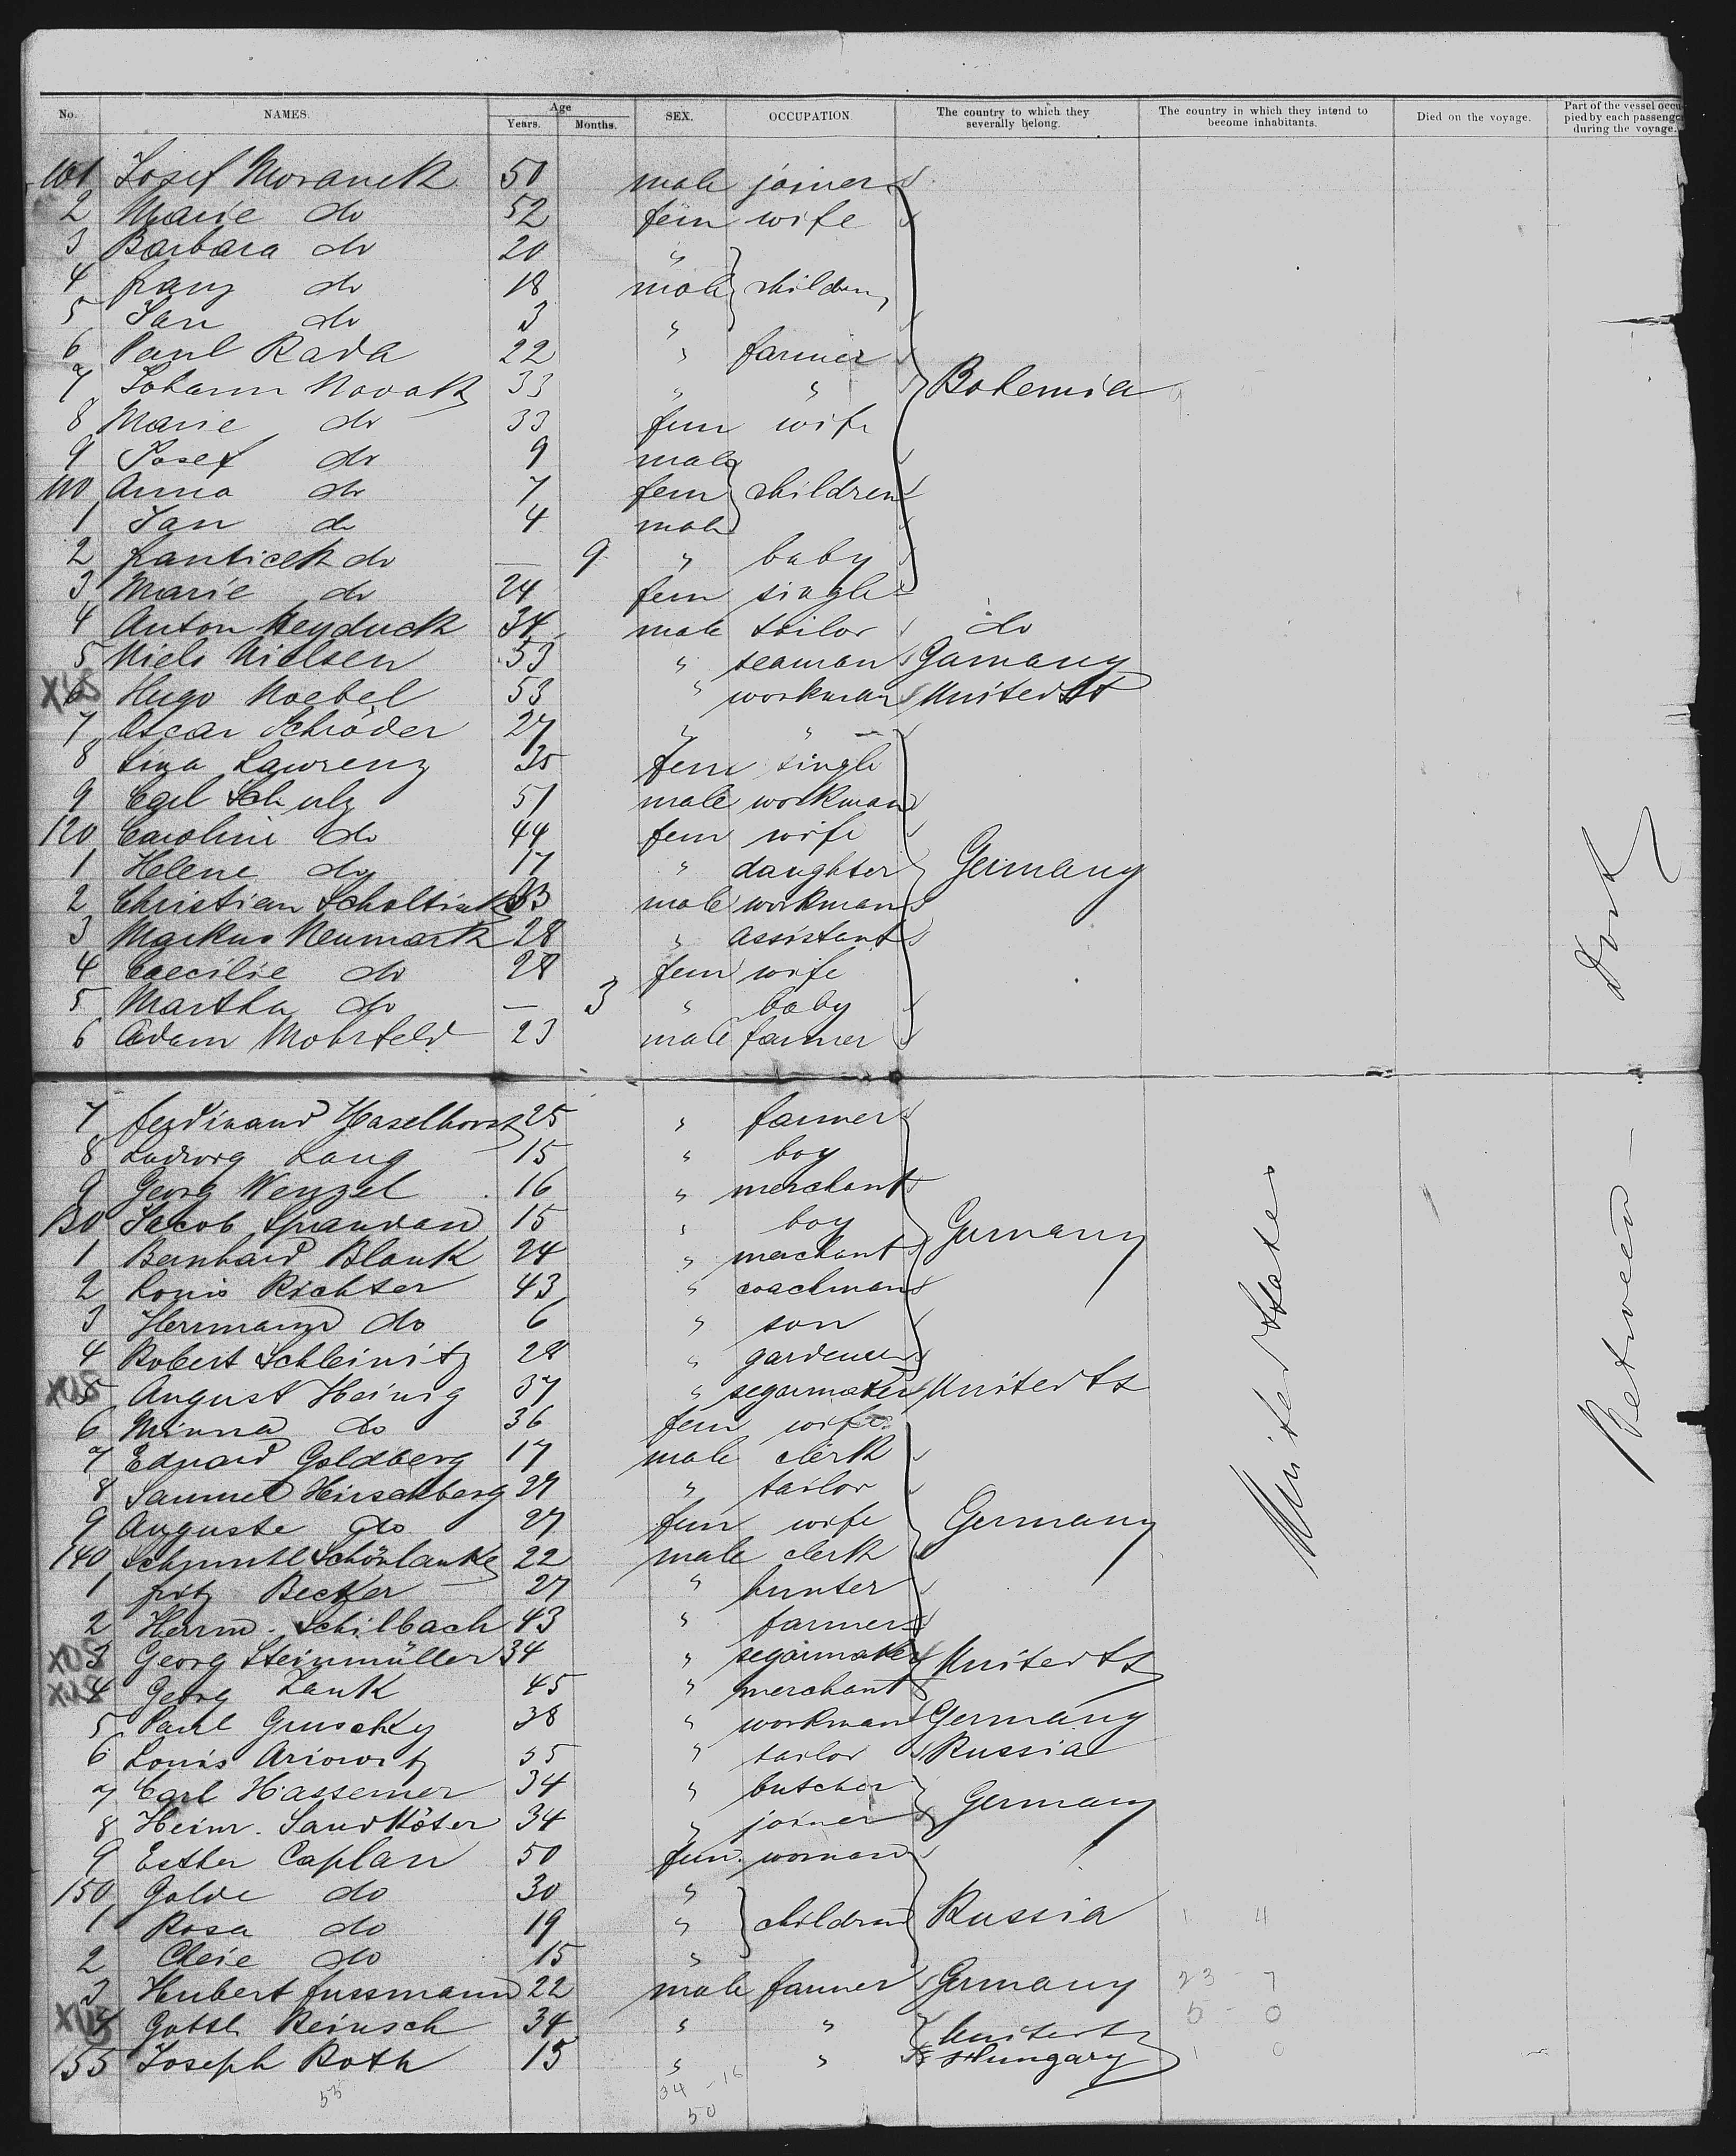 No. NAMES. Age Years. Months. SEX. OCCUPATION. The country to which they severally belong. The country in which they intend to become inhabitants. Died on the voyage. Part of the vessel occupied by each passenger during the voyage.
101 Josef Moraneck 50 male joiner
2 Marie do 52 fem wife
3 Barbara do 20 "
4 franz do 18 male children
5 Jan do 3 "
6 Paul Rada 22 " farmer
7 Johann Novak 33 " " Bohemia
8 Marie do 33 fem wife
9 Josef do 9 male
110 Anna do 7 fem children
1 Jan do 4 male
2 franticek do — 9 " baby
3 Marie do 24 fem single
4 Anton Heyduck 34 male tailor do
5 Niels Nielsen 53 " seaman Gemany
XUS 6 Hugo Noebel 53 " workman United St
7 Oscar Schröder 27 " "
8 Lina Lawrenz 35 fem single
9 Carl Schulz 51 male workman
120 Caroline do 44 fem wife
1 Helene do 17 " daughter Germany
2 Christian 33 male workman
3 Markus Neumark 28 " assistant
4 Caecilie do 28 fem wife
5 Martha do — 3 " baby
6 Adam Mohrfeld 23 male farmer
7 ferdinand Haselhorst 25 " farmer
8 Ludwig Lang 15 " boy
9 Georg Wenzel 16 " merchant
130 Jacob Spandau 15 " boy Germany
1 Bernhard Blank 24 " merchant
2 Louis Richter 43 " coachman
3 Herrmann do 6 " son
4 Robert Schleinitz 28 " gardener
XUS 5 August Heinig 37 " segarmaker United Ts
6 Minna do 36 fem wife
7 Eduard Goldberg 17 male clerk
8 Samuel Hirschberg 27 " tailor
9 Auguste do 27 fem wife Germany
140 Schönlanke 22 male clerk
1 fritz Becker 27 " hunter
2 Herrm. Schilbach 43 " farmer
XUS 3 Georg Steinmüller 34 " segarmaker United Ts
XUS 4 Georg Lank 45 " merchant
5 Paul Gruschky 38 " workman Germany
6 Louis Ariowitz 35 " tailor Russia
7 Carl Hassemer 34 " butcher
8 Heinr. Sandköter 34 " joiner Germany
9 Esther Caplan 50 fem. woman
150 Golde do 30 "
1 Rosa do 19 " children Russia
2 Cheie do 15 "
3 Hubert fussmann 22 male farmer Germany
XUS 4 Gottl. Reinsch 34 " " United Ts
155 Joseph Roth 15 " " Hungary
United States
Between Deck
1 4
23 - 7
5 - 0
1 0
53
34 - 16
50